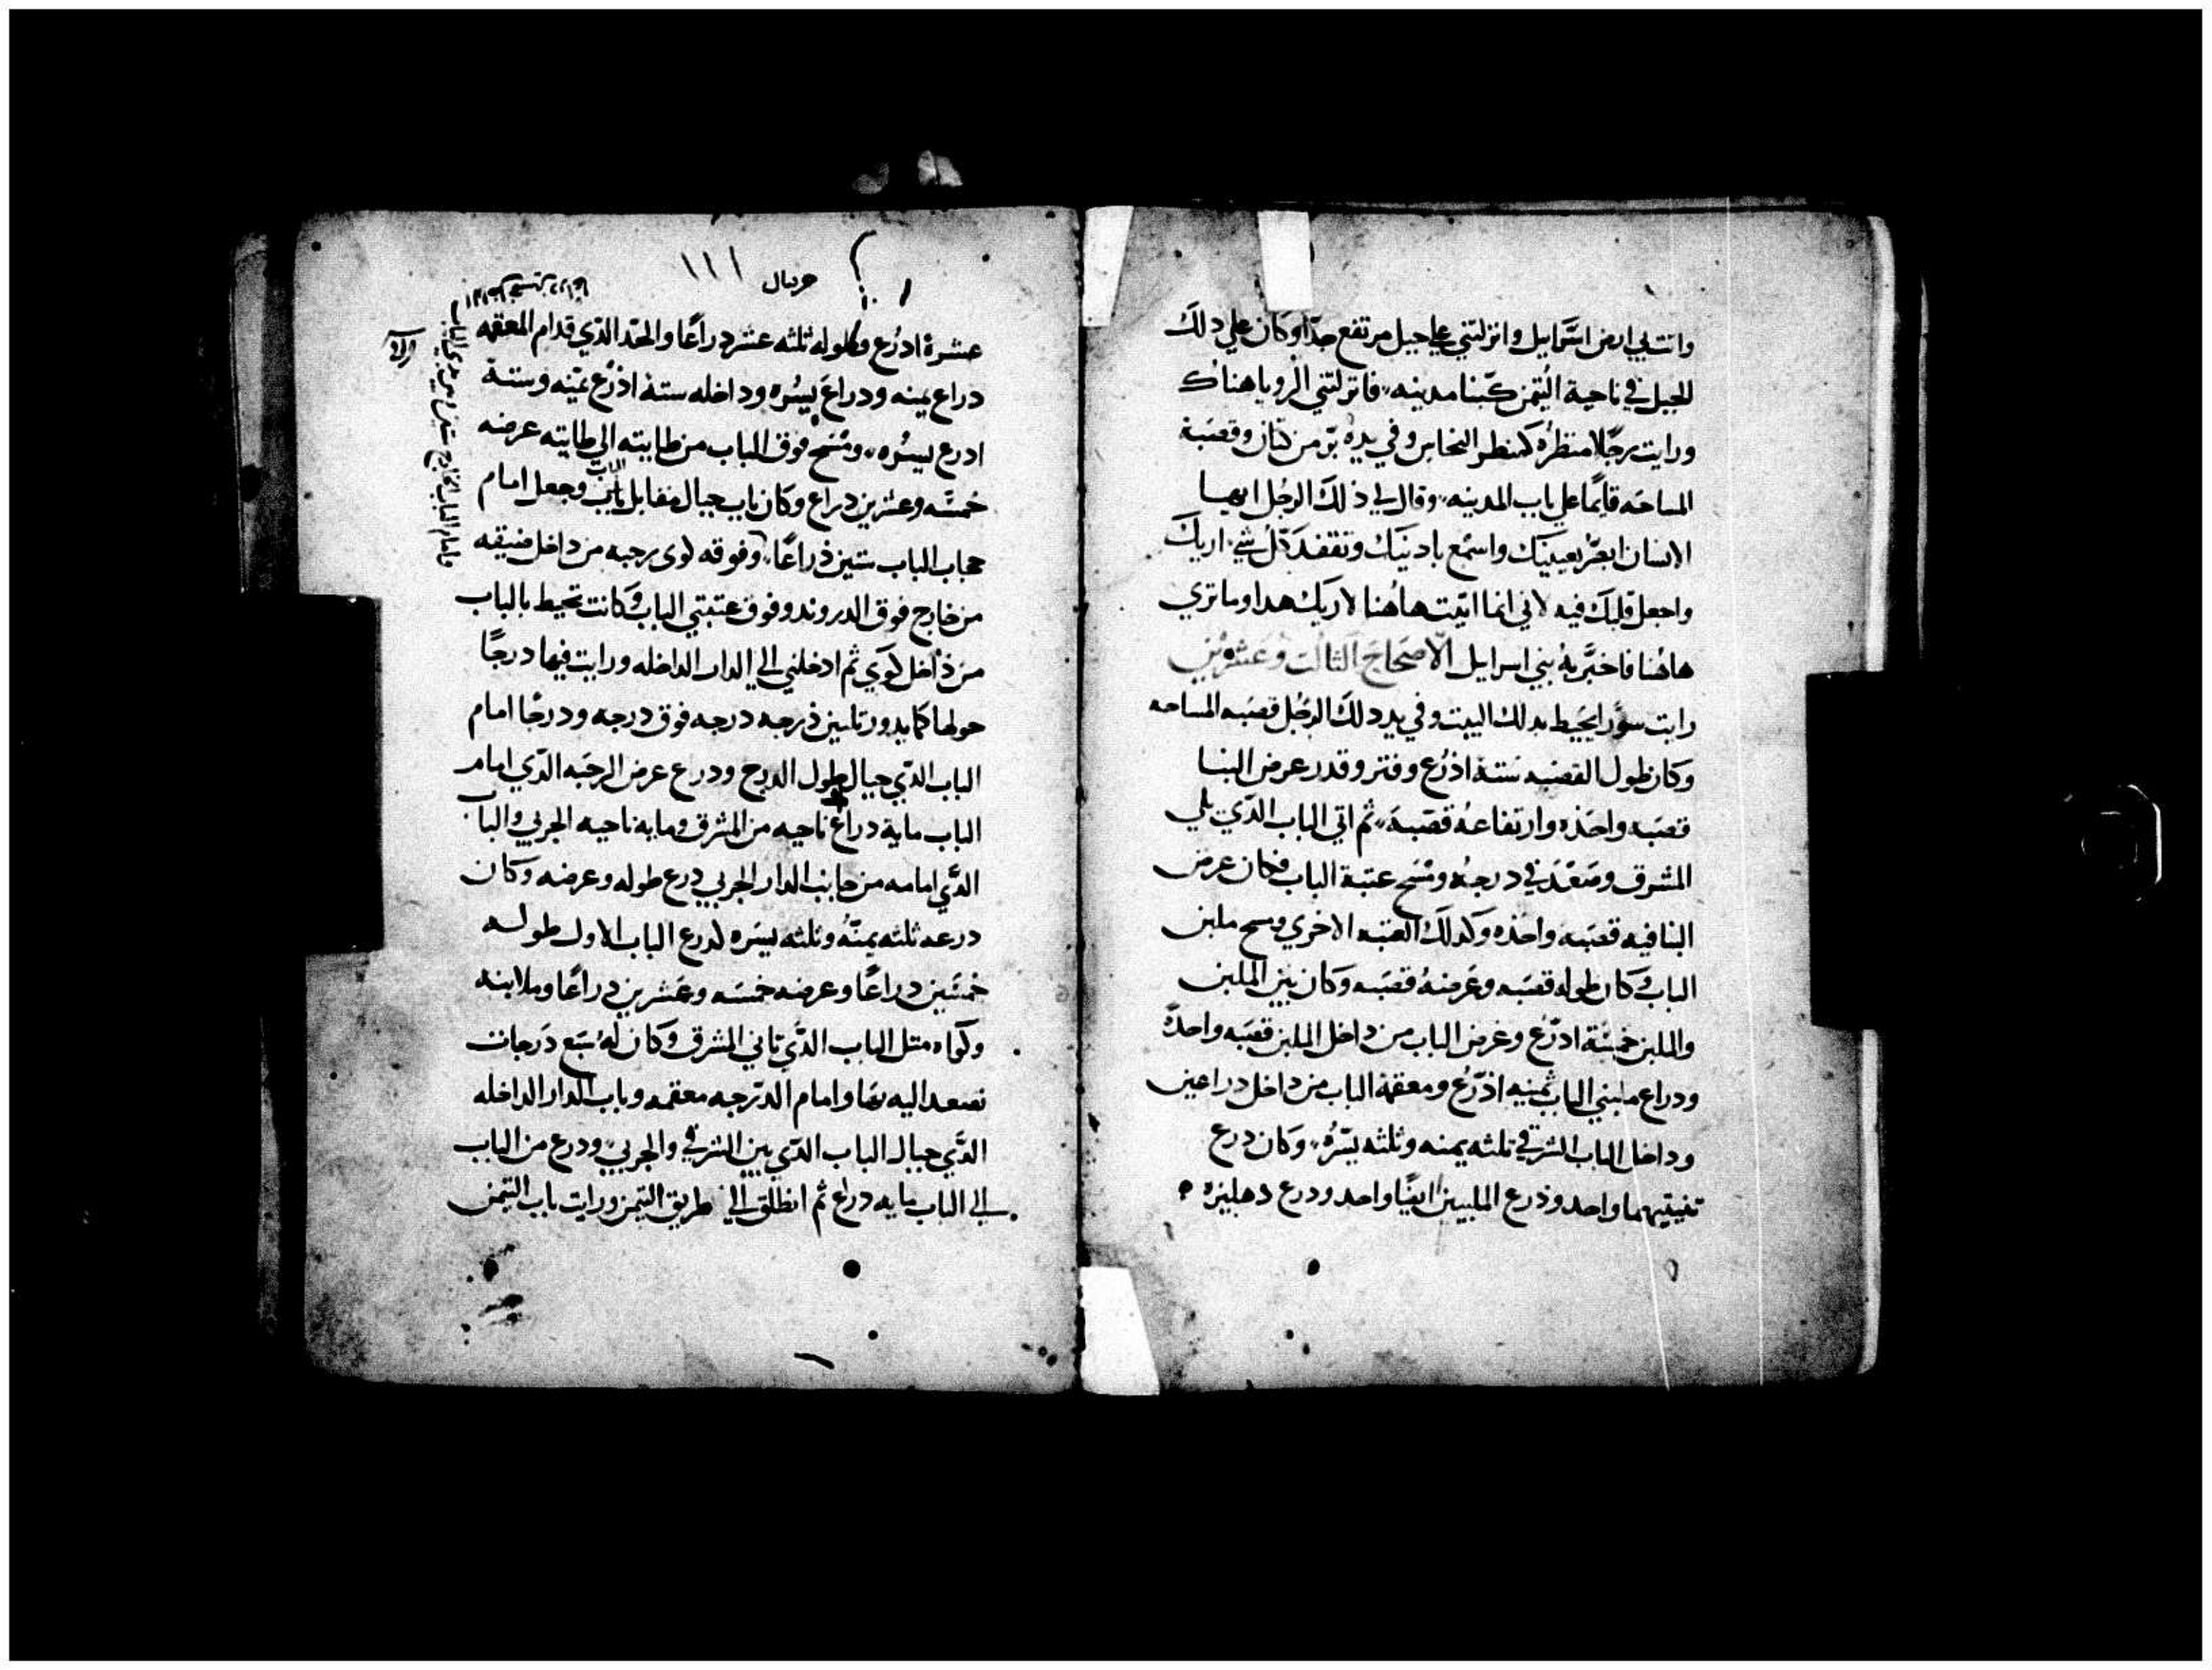 واتت بي ارض اسَرايل وانزلتني علي جبل مرتفع جدًا وكان علي دلك
الجبل في ناحية اليُتمن كبنا مدينه فانزلتني الرويا هناك
ورايت رجُلًا منظرُه كمنظر النحاس وفي يدِه بَو من كتان وقصَبة
المساحَه قايمًا علي باب المدينه وقال لي ذلكَ الرجُل ايها
الانسان ابصَر بعينيَك واسمَع بادنيَك وتفقدَ كُل شي اريكَ
واجعل قلبَكَ فيه لاني انما اتيَت هاهُنا لاريك هدا وما تري
هاهُنا فاخبَر به بني اسرايل الاصحَاحَ الثالث وعشرين
رايت سورًا يحَيط بدلك البيت وفي يد دلكَ الرجُل قصَبه المساحه
وكان طول القصَبه سَتة اذرُع وفتر وقدر عرض البنا
قصَبه واحدَه وارتفاعهُ قصَبة ثم اتي الباب الدَي يلي
المشرق وصَعَد في درجهُ ومسَح عتبة الباب فكان عرض
البنا فيه قصَبه واحدَه وكدلكَ العتبه الاخري ومسح ملبن
الباب وكان طوله قصَبه وعَرضهُ قصَبه وكان بين الملبن
والملبن خمسَة ادرُع وعرض الباب من داخل الملبن قصَبه واحدَة
ودراع ملبني الباب ثمنيه اذرُع ومعقمة الباب من داخل دراعين
وداخل الباب الشرقي تلثه يمنه وثلثه يسَرهُ وكان درع
تنيتيهما واحد وذرع الملبنين ايضًا واحد ودرع دهليزه
حزقيال ١١١
عشرة ادرُع وطوله ثلثه عشر دراعًا والحَد الدَي قدام المعقمه
دراع يمنه ودراع يسُره وداخله ستة اذرُع يمنه وستة
ادرع يسُره ومسَح فوق الباب من طايته الي طايته عرضه
خمسَه وعشرين دراع وكان باب حيال مقابل باب الباب وجعل امام
حجاب الباب ستين ذراعًا وفوقه لوي رحبه من داخل ضيقه
من خارج فوق الدروند وفوق عتبتي الباب وكانت تحيط بالباب
من ذاخل لَوَي ثم ادخلني الي الدار الداخله ورايت فيها درجًا
حولها كما يدور تلثين ذرجه درجه فوق درجه ودرجًا امام
الباب الدَي حيال طول الدرج ودرع عرض الرحبَه الدَي امام
الباب ماية دراع ناحيه من المشرق ومايه ناحيه الجربي والباب
الدَي امامه من جانب الدار الجربي درع طوله وعرضه وكان
درعه ثلثه يمنَهُ وثلثه يسَره كدرع الباب الاول طوله
خمسَين دراعًا وعرضه خمسَه وعَشرين دراعًا وملابنه
وكواه مثل الباب الدَي تاني المشرق وكان لهُ سَبع دَرجات
تصعد اليه بهَا وامام الدَرجه معقمه وباب الدار الداخله
الدَي حيال الباب الدَي بين الشرقي والجربي ودرع من الباب
الي الباب مايه دراع ثم انطلق الي طريق التيمن ورايت باب التيمن